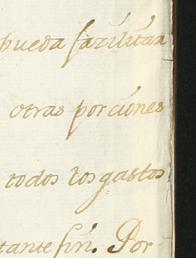 pueda facilitár
otras porciónes
todos los gastos
tante fin. Por-